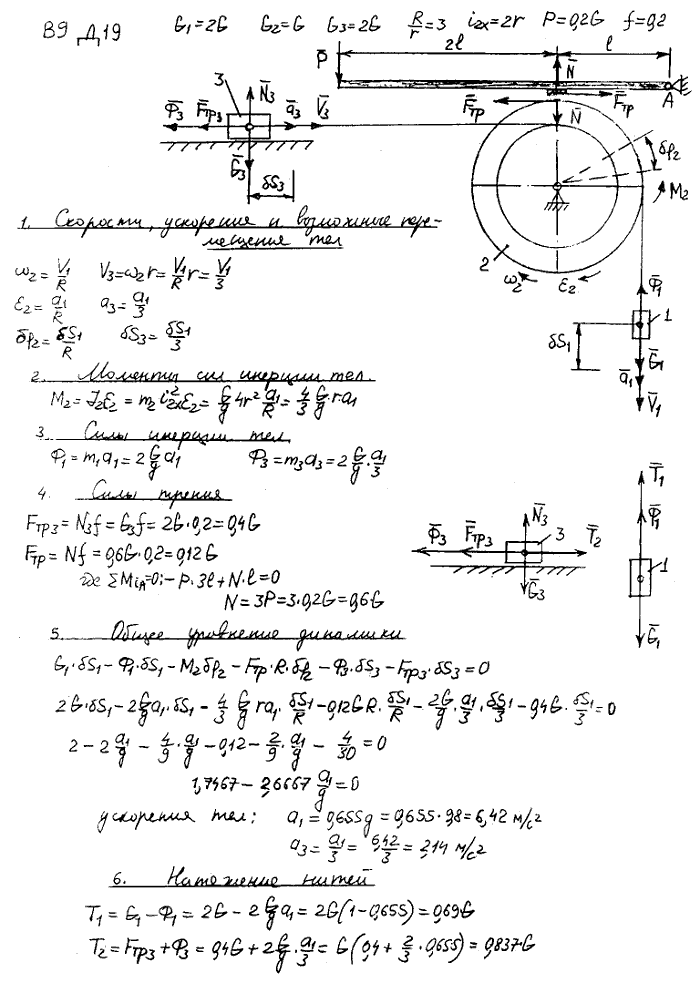 В9 Д19 G₁=2G G₂=G G₃=2G R/r=3 i₂ₓ=2r P=0,2G f=0,2
2l l
P̄ N̄
F̄тр F̄тр A
N̄
3 N̄₃
Φ̄₃ F̄тр₃ ā₃ V̄₃
Ḡ₃
δS₃
δφ₂
M₂
2 ω₂ ε₂
Φ̄₁
1
δS₁
Ḡ₁
ā₁
V̄₁
1. Скорости, ускорения и возможные пере-
мещения тел
ω₂ = V₁/R V₃=ω₂r= V₁/R r= V₁/3
ε₂ = a₁/R a₃ = a₁/3
δφ₂= δS₁/R δS₃= δS₁/3
2. Моменты сил инерции тел
M₂ = J₂ε₂ = m₂ i₂ₓ² ε₂ = G/g 4r² a₁/R = 4/3 G/g · r a₁
3. Силы инерции тел
Φ₁ = m₁a₁ = 2 G/g a₁ Φ₃ = m₃a₃ = 2 G/g · a₁/3
4. Силы трения
Fтр₃ = N₃f = G₃f = 2G·0,2 = 0,4G
Fтр = Nf = 0,6G·0,2 = 0,12G
где ΣMᵢA=0; – P·3l + N·l = 0
N = 3P = 3·0,2G = 0,6G
T̄₁
Φ̄₁
1
Ḡ₁
N̄₃
Φ̄₃ F̄тр₃ 3 T̄₂
Ḡ₃
5. Общее уровнение динамики
G₁·δS₁ – Φ₁·δS₁ – M₂δφ₂ – Fтр·R·δφ₂ – Φ₃·δS₃ – Fтр₃·δS₃ = 0
2G·δS₁ – 2 G/g a₁·δS₁ – 4/3 G/g r a₁· δS₁/R – 0,12G R· δS₁/R – 2G/g · a₁/3 · δS₁/3 – 0,4G · δS₁/3 = 0
2 – 2 a₁/g – 4/9 · a₁/g – 0,12 – 2/9 · a₁/g – 4/30 = 0
1,7467 – 2,6667 a₁/g = 0
ускорения тел: a₁ = 0,655g = 0,655·9,8 = 6,42 м/с²
a₃ = a₁/3 = 6,42/3 = 2,14 м/с²
6. Натяжение нитей
T₁ = G₁ – Φ₁ = 2G – 2 G/g a₁ = 2G(1 – 0,655) = 0,69G
T₂ = Fтр₃ + Φ₃ = 0,4G + 2 G/g · a₁/3 = G(0,4 + 2/3 · 0,655) = 0,837·G